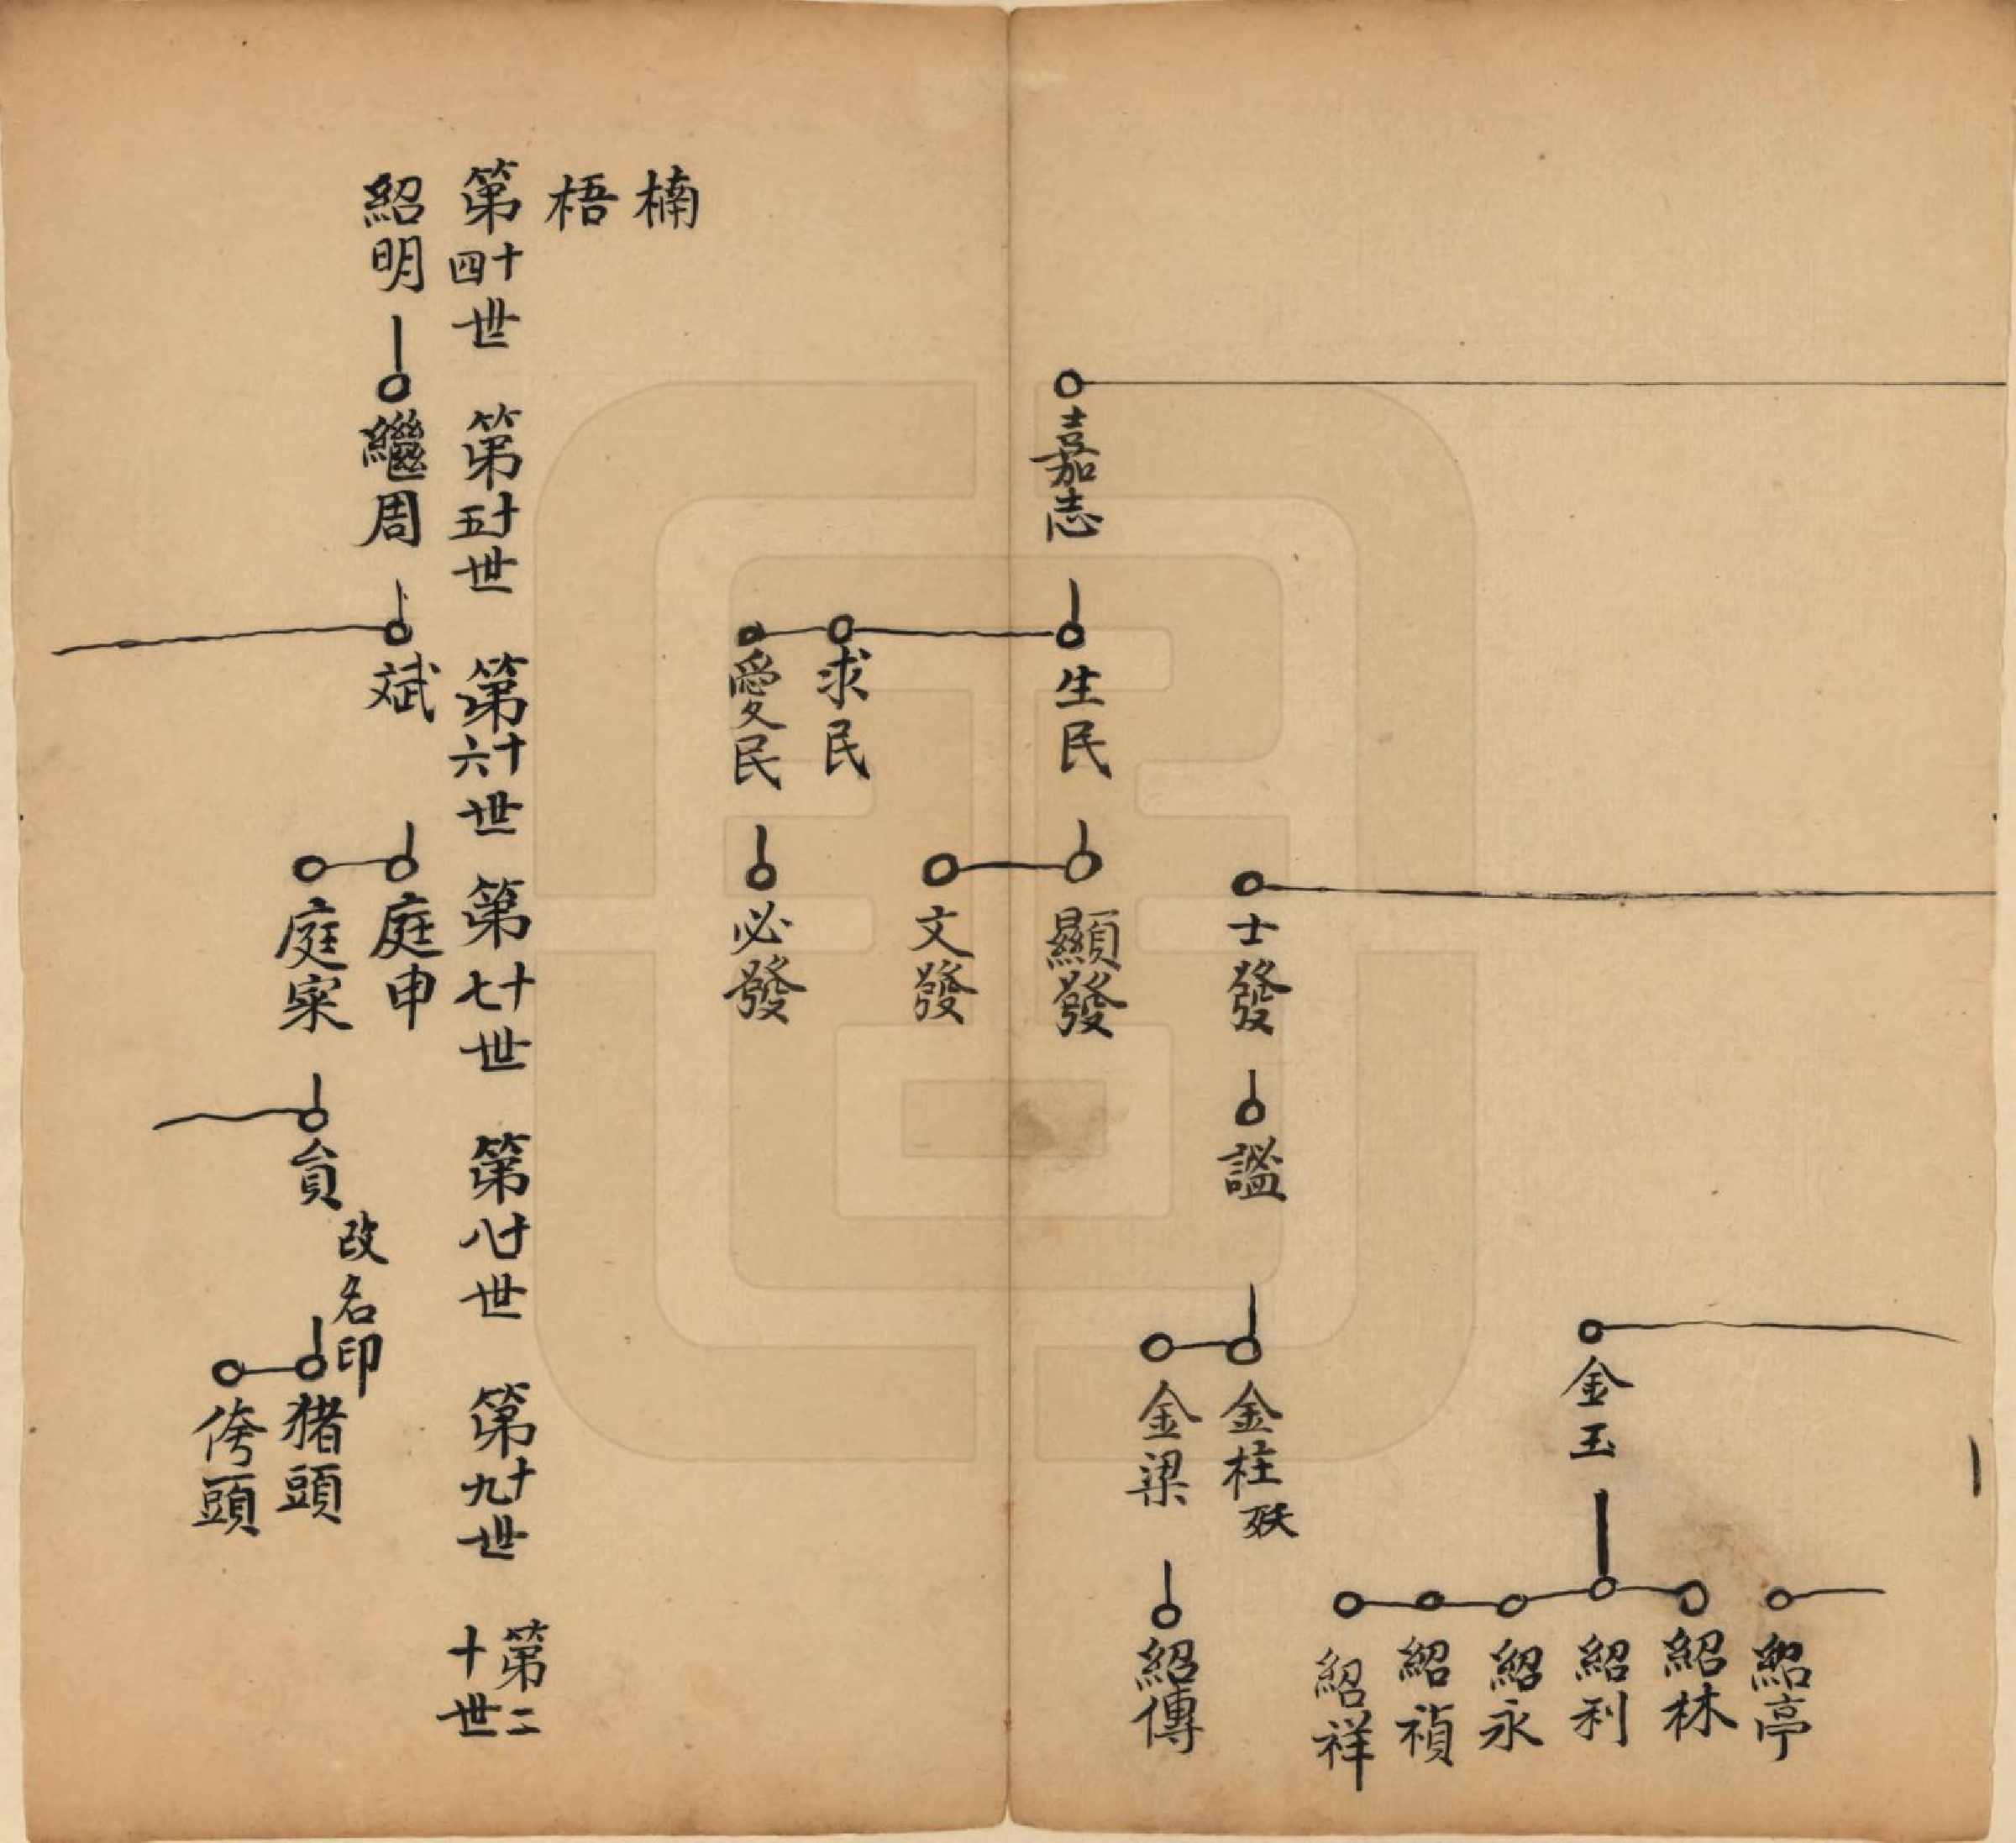 嘉志
生民
求民
愛民
士發
顯發
文發
必發
謐
金玉
金柱 殀
金梁
紹亭
紹林
紹利
紹永
紹禎
紹祥
紹傳
楠
梧
第十四世
第十五世
第十六世
第十七世
第十八世
第十九世
第二十世
紹明
繼周
斌
庭申
庭寀
貟 改名印
猪頭
侉頭